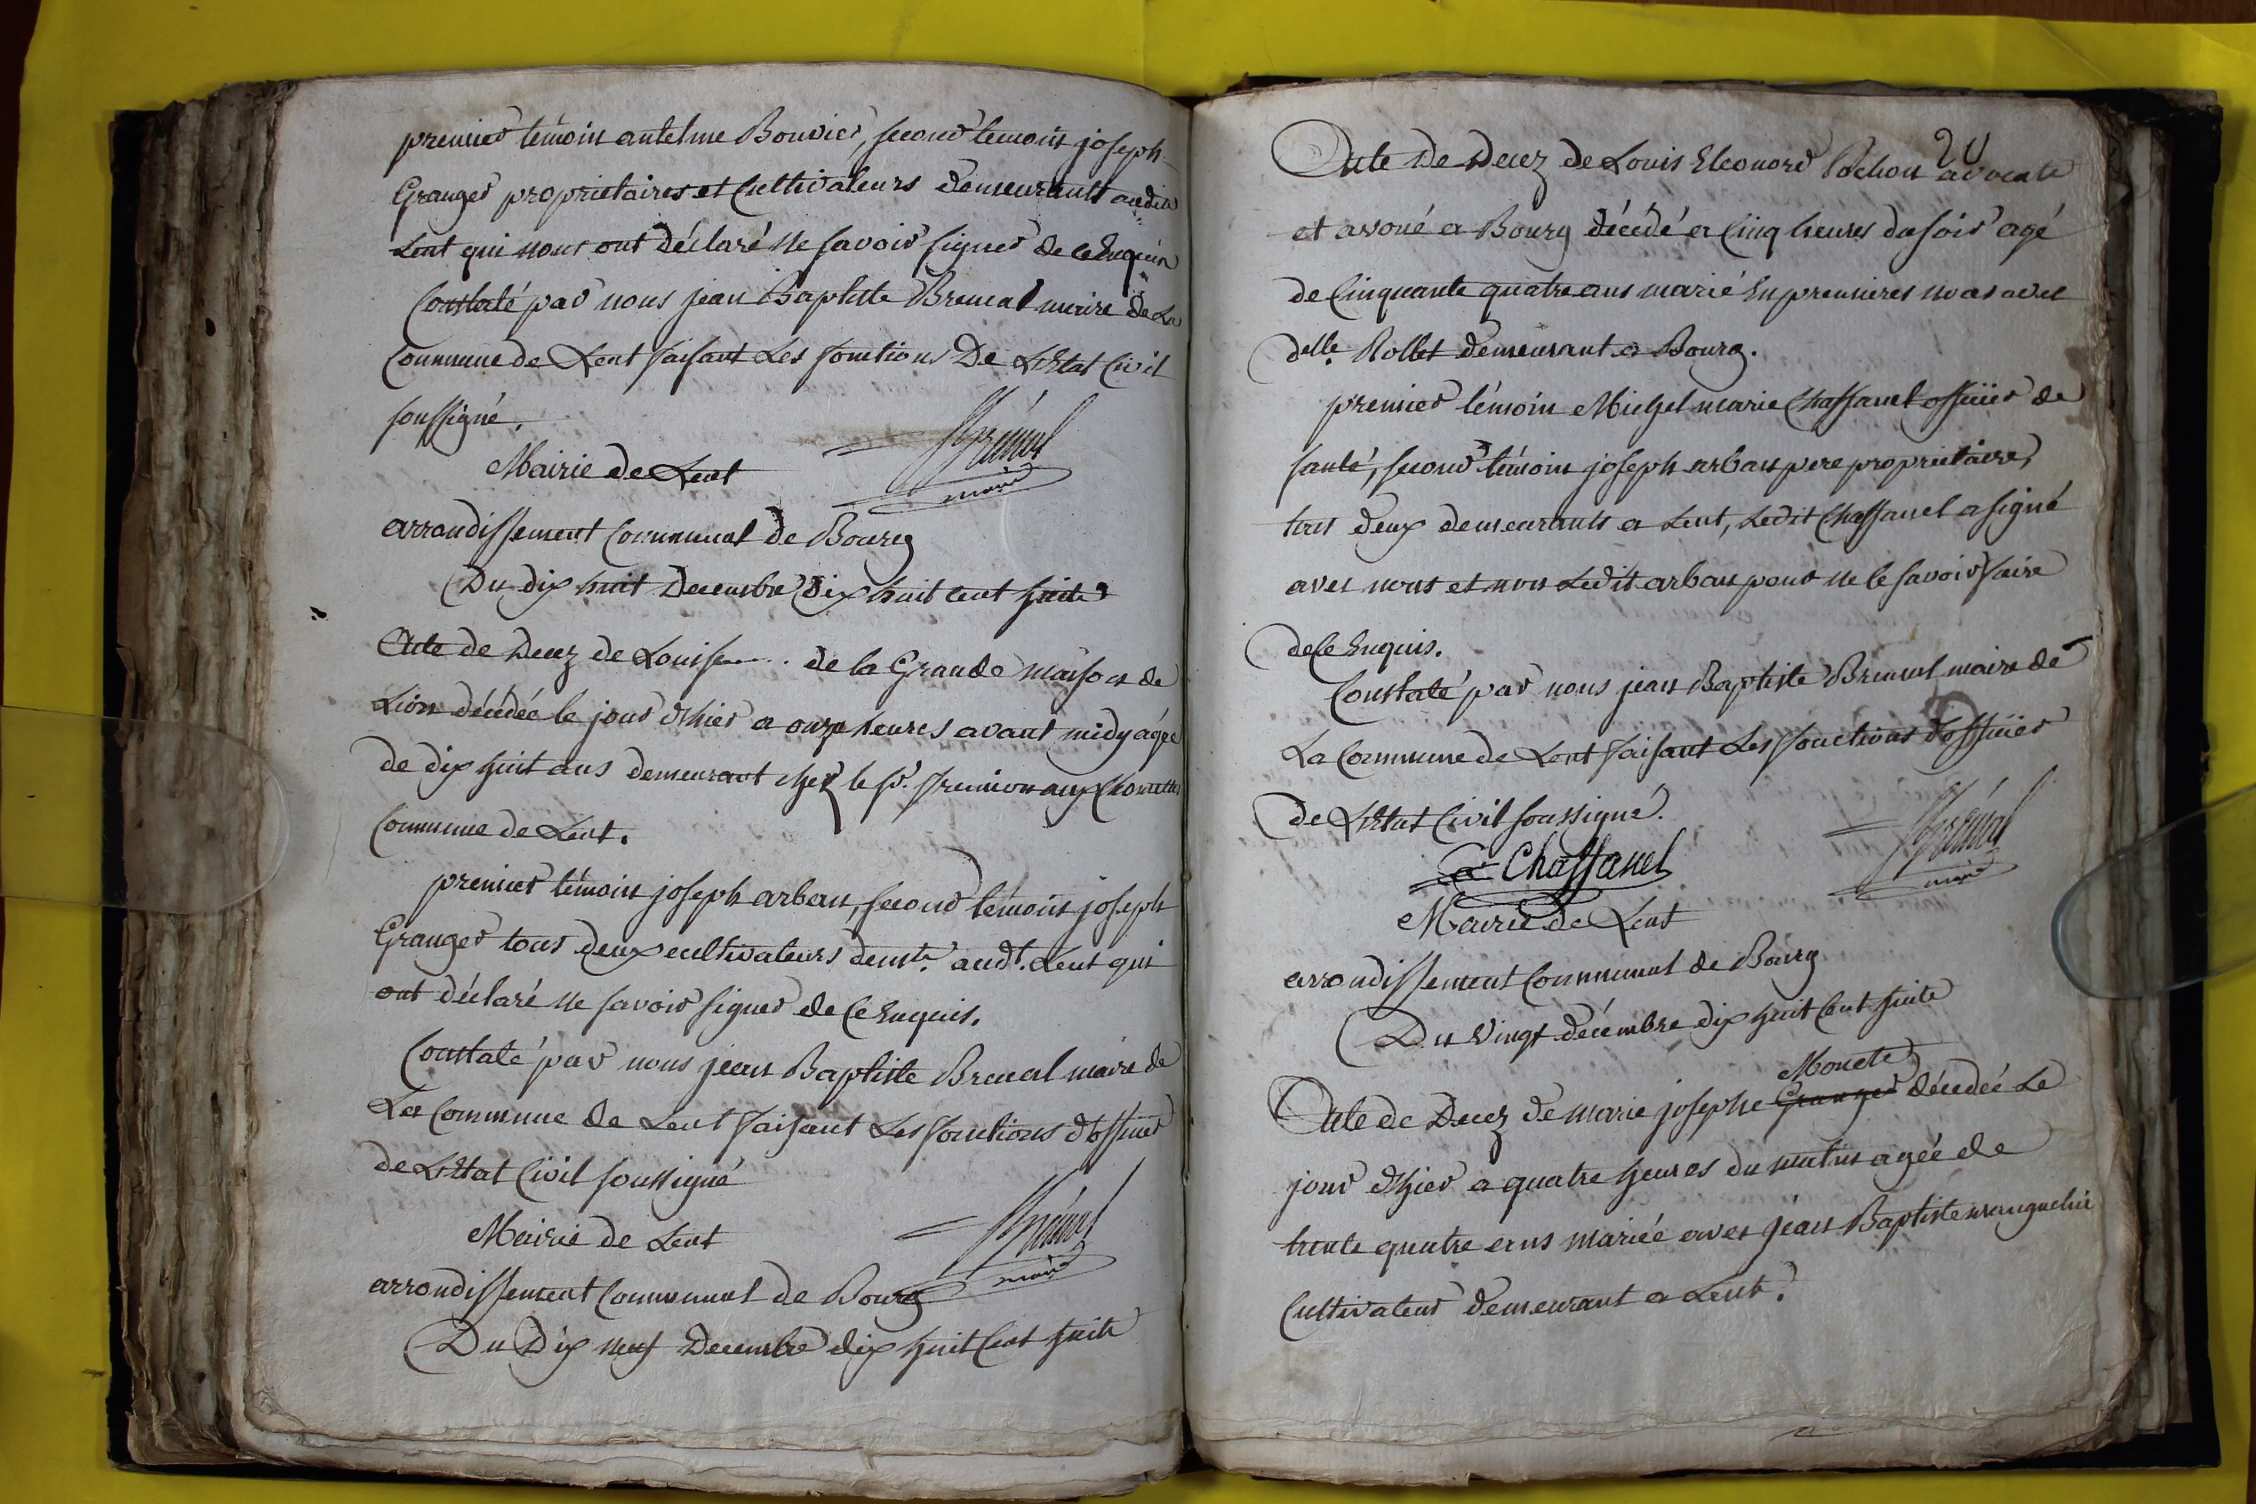 premier témoin antelme Bouvier, second témoin joseph
Granger proprietaires et Cultivateurs demeurants audit
Lent qui nous ont déclaré ne savoir signer de ce Enquis
Constaté par nous jean Baptiste Breuval maire de La
Commune de Lent faisant Les fonctions De L'Etat Civil
soussigné.
Mairie de Lent
maire
arrondissement Communal de Bourg
Du dix huit Decembre dix huit cent huite
Acte de Decez de Louise de la Grande maison de
Lion décédée le jour d'hier a onze heures avant midy agée
de dix huit ans demeurant chez le sr. aux
Commune de Lent.
premier témoin joseph arban, second témoin joseph
Granger tous deux cultivateurs demts. audt. Lent qui
ont déclaré ne savoir signer de Ce Enquis.
Constaté par nous jean Baptiste Breuval maire de
La Commune de Lent faisant Les fonctions d'officier
de L'Etat Civil soussigné
Mairie de Lent
maire
arrondissement Communal de Bourg
Du Dix neuf Decembre dix huit Cent huite
20
Acte De Decez de Louis Eleonord Pochon avocate
et avoué a Bourg décédé a Cinq heures du soir agé
de Cinquante quatre ans marié En premieres noces avec
delle. Rollet demeurant a Bourg.
premier témoin Michel marie Chassanel officier de
santé, second témoin joseph arban pere proprietaire,
tous deux demeurants a Lent, Ledit Chassanel a signé
avec nous et non Ledit arban pour ne le savoir faire
de Ce Enquis.
Constaté par nous jean Baptiste Breuval maire de
La Commune de Lent faisant Les fonctions d'officier
de L'Etat Civil soussigné.
Chassanel
maire
Mairie de Lent
arrondissement Communal de Bourg
Du Vingt décembre dix huit Cent huite
Monete
Acte de Decez de marie josephe Granger décedeé Le
jour d'hier a quatre heures du matin ageé de
trente quatre ans mariée avec jean Baptiste manguelin
Cultivateur demeurant a Lent.